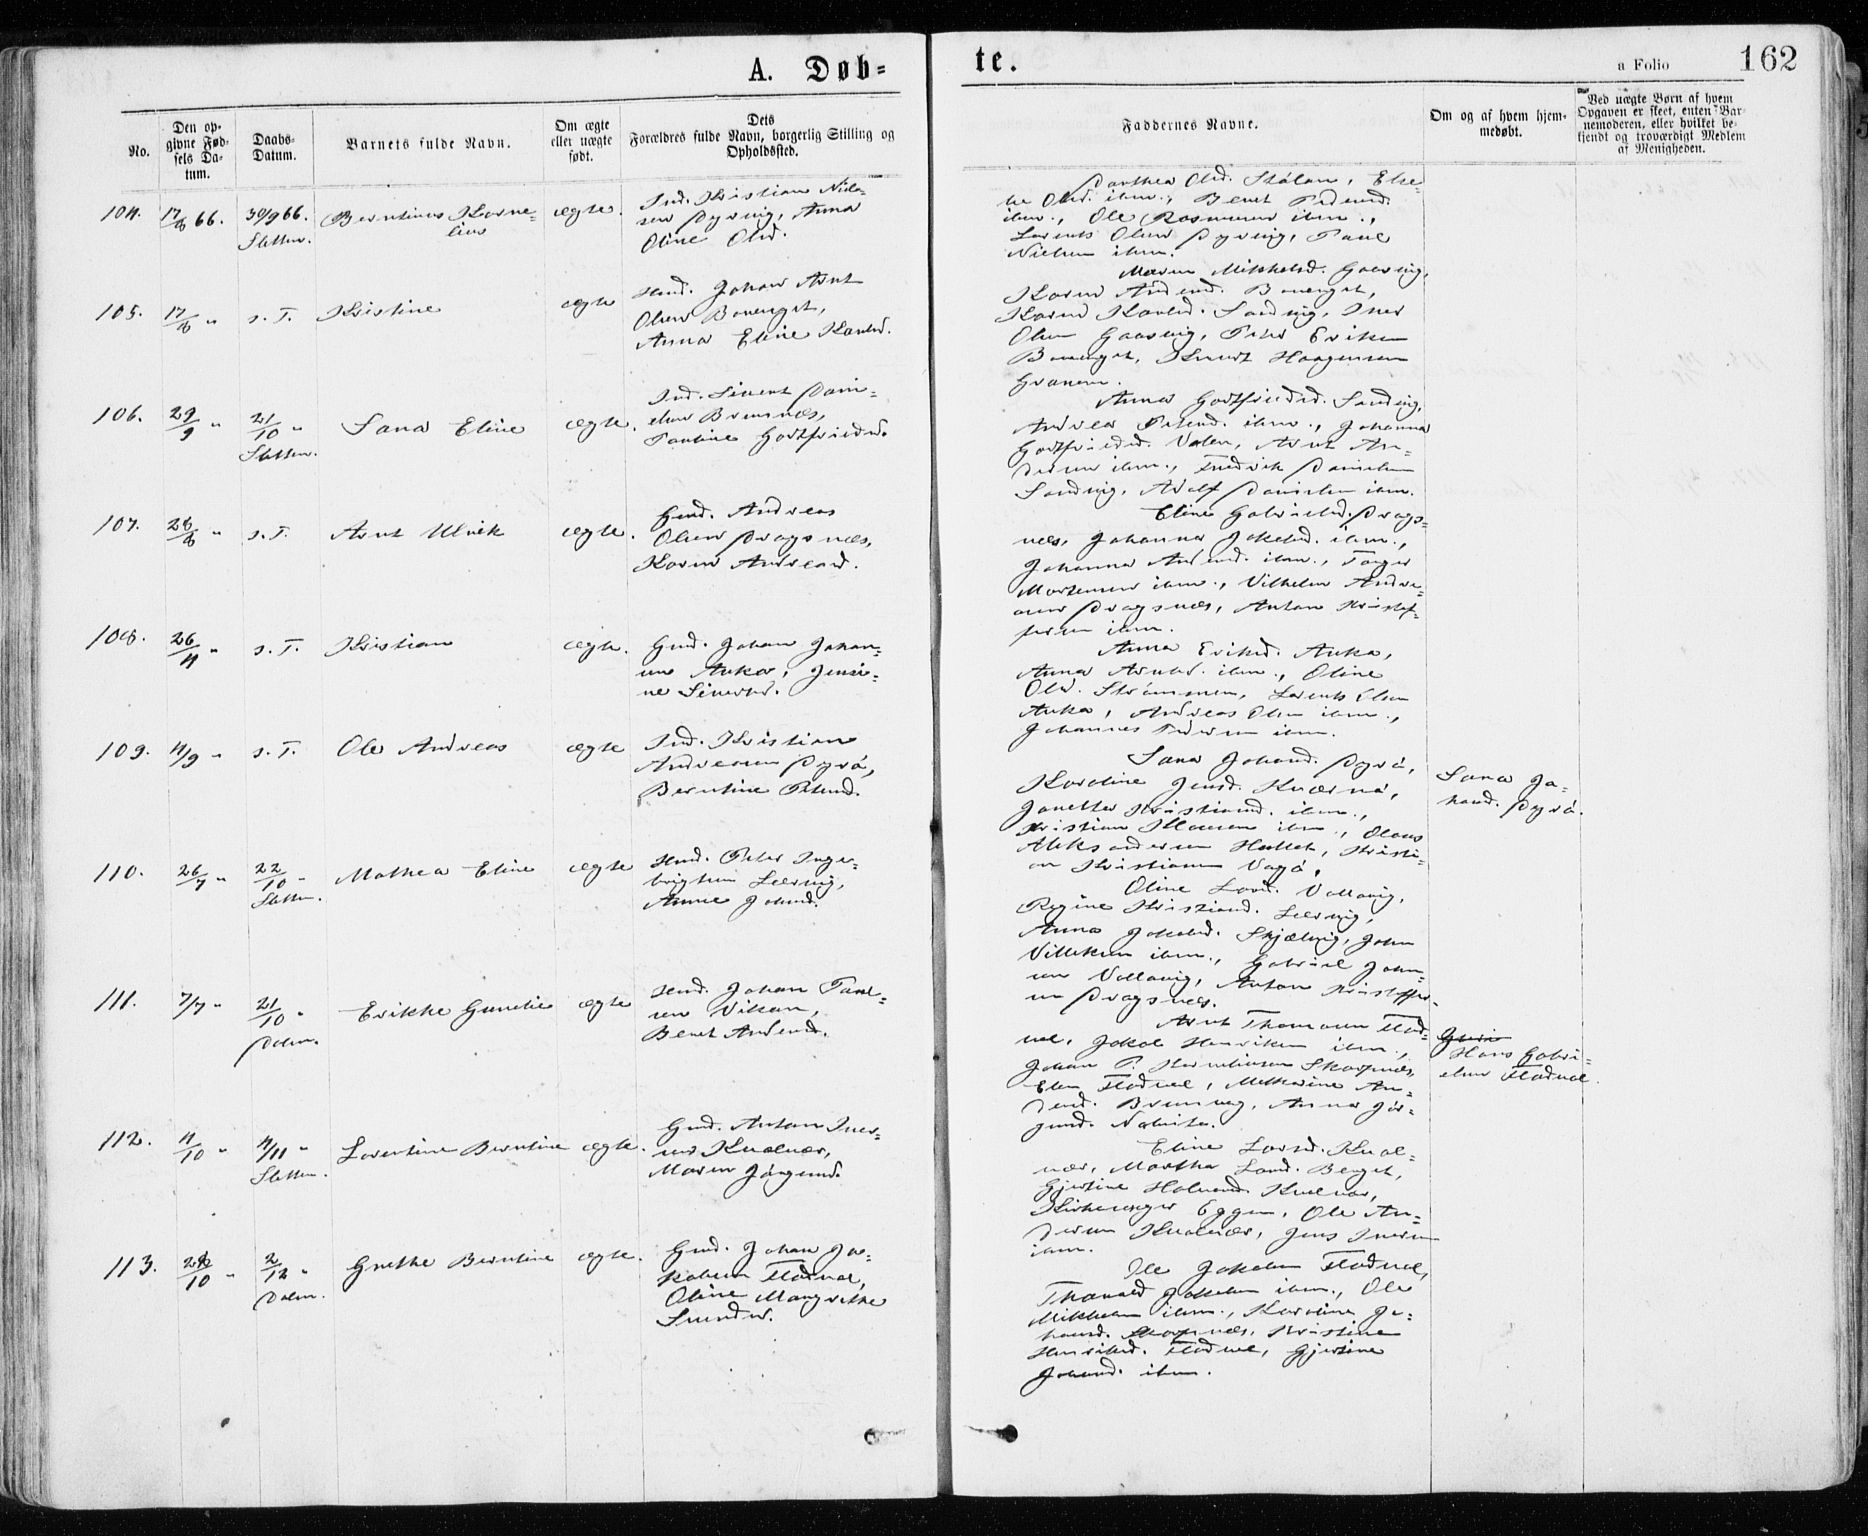 A. Døb=
te.
a Folio 162
No.
Den op-
givne Fød-
sels Da-
tum.
Daabs-
Datum.
Barnets fulde Navn.
Om ægte
eller uægte
født.
Dets
Forældres fulde Navn, borgerlig Stilling og
Opholdssted.
Faddernes Navne.
Om og af hvem hjem-
medøbt.
Ved uægte Børn af hvem
Opgaven er skeet, enten Bar-
nemoderen, eller hvilket be-
kjendt og troværdigt Medlem
af Menigheden.
104. 17/8 66. 30/9 66. Berntinus Korne=
Sletten. lius
ægte.
Ind. Kristian Niel=
sen Dyrvig, Anna
Oline Olsd.
Dorthea Olsd. Skålan, Else=
be Olsd. ibm., Beret Pedersd.
ibm., Ole Rasmussen ibm.,
Lorents Olsen Dyrvig, Paul
Nielsen ibm.
105. 17/8 " s. T. Kristine ægte
Husmd. Johan Arnt
Olsen Bonenget,
Anna Eline Karlsd.
Maren Mikkelsd. Gaasvig,
Karen Andersd. Bonenget,
Karen Karlsd. Sandvig, Iver
Olsen Gaasvig, Peter Eriksen
Bonenget, Knudt Haagensen
Granem.
106. 29/9 " 21/10 " Sletten. Sara Eline ægte.
Ind. Sivert Dani=
elsen Bremnes,
Pauline Godtfriedsd.
Anna Godtfriedsd. Sandvig,
Andrea Petersd. ibm., Johanna
Godtfriedsd. Valen, Arnt An=
dersen ibm., Fredrik Danielsen
Sandvig, Adolf Danielsen ibm.
107. 28/8 " s. T. Arnt Ulrik ægte.
Gmd. Andreas
Olsen Dragsnes,
Karen Andreasd.
Eline Gabrielsd. Drags=
nes, Johanna Jakobsd. ibm.,
Johanna Andersd. ibm., Torger
Mortensen ibm., Vilhelm Andre=
asen Dragsnes, Anton Kristof=
fersen ibm.
108. 26/4 " s. T. Kristian ægte.
Gmd. Johan Johan=
sen Auka, Jensi=
ne Sivertsd.
Anna Eriksd. Auka,
Anna Arntsd. ibm., Oline
Olsd. Strømmen, Lorents Olsen
Auka, Andreas Olsen ibm.,
Johannes Pedersen ibm.
109. 4/9 " s. T. Ole Andreas ægte
Ind. Kristian
Andreassen Dyrø,
Berntine Petersd.
Sara Johansd. Dyrø,
Karoline Jensd. Kværnø,
Janetta Kristiansd. ibm.,
Kristian Klausen ibm., Olaus
Aleksandersen Hallet, Kristi=
an Kristiansen Vagø,
Sara Jo=
hansd. Dyrø.
110. 26/7 " 22/10 " Sletten. Mathea Eline ægte
Husmd. Peter Inge=
brigtsen Leervig,
Anne Johnsd.
Oline Larsd. Vallavig,
Regine Kristiansd. Leervig,
Anna Jakobsd. Skjælvig, John
Villeksen ibm., Gabriel John=
sen Vallavig, Anton Kristoffer=
sen Dragsnes.
111. 7/7 " 21/10 " Dolm. Erikke Gunelie ægte
Husmd. Johan Paul=
sen Vikan,
Beret Andersd.
Arnt Thomasen Flad=
val, Jakob Henriksen ibm.,
Johan P. Korneliusen Skarpnes,
Elen Fladval, Methrine An=
dersd. Bremneg, Anna Jør=
gensd. Nabeita.
Hans Gabri=
elsen Fladval.
112. 4/10 " 4/11 " Sletten. Lorentine Berntine ægte.
Gmd. Anton Iver=
sen Kvalnes,
Maren Jørgensd.
Eline Larsd. Kval=
nes, Martha Larsd. Berget,
Gjertine Halvorsd. Kvalnes,
Kirkesanger Eggen, Ole An=
dersen Kvalnes, Jens Iversen
ibm.
113. 28/10 " 2/12 " Dolm. Grethe Berntine ægte.
Gmd. Johan Ja=
kobsen Fladval,
Oline Margrethe
Svendsd.
Ole Jakobsen Fladval,
Thorvald Jakobsen ibm., Ole
Mikkelsen ibm., Karoline Jo=
hansd. Skarpnes, Kristine
Henriksd. Fladval, Gjertine
Johansd. ibm.